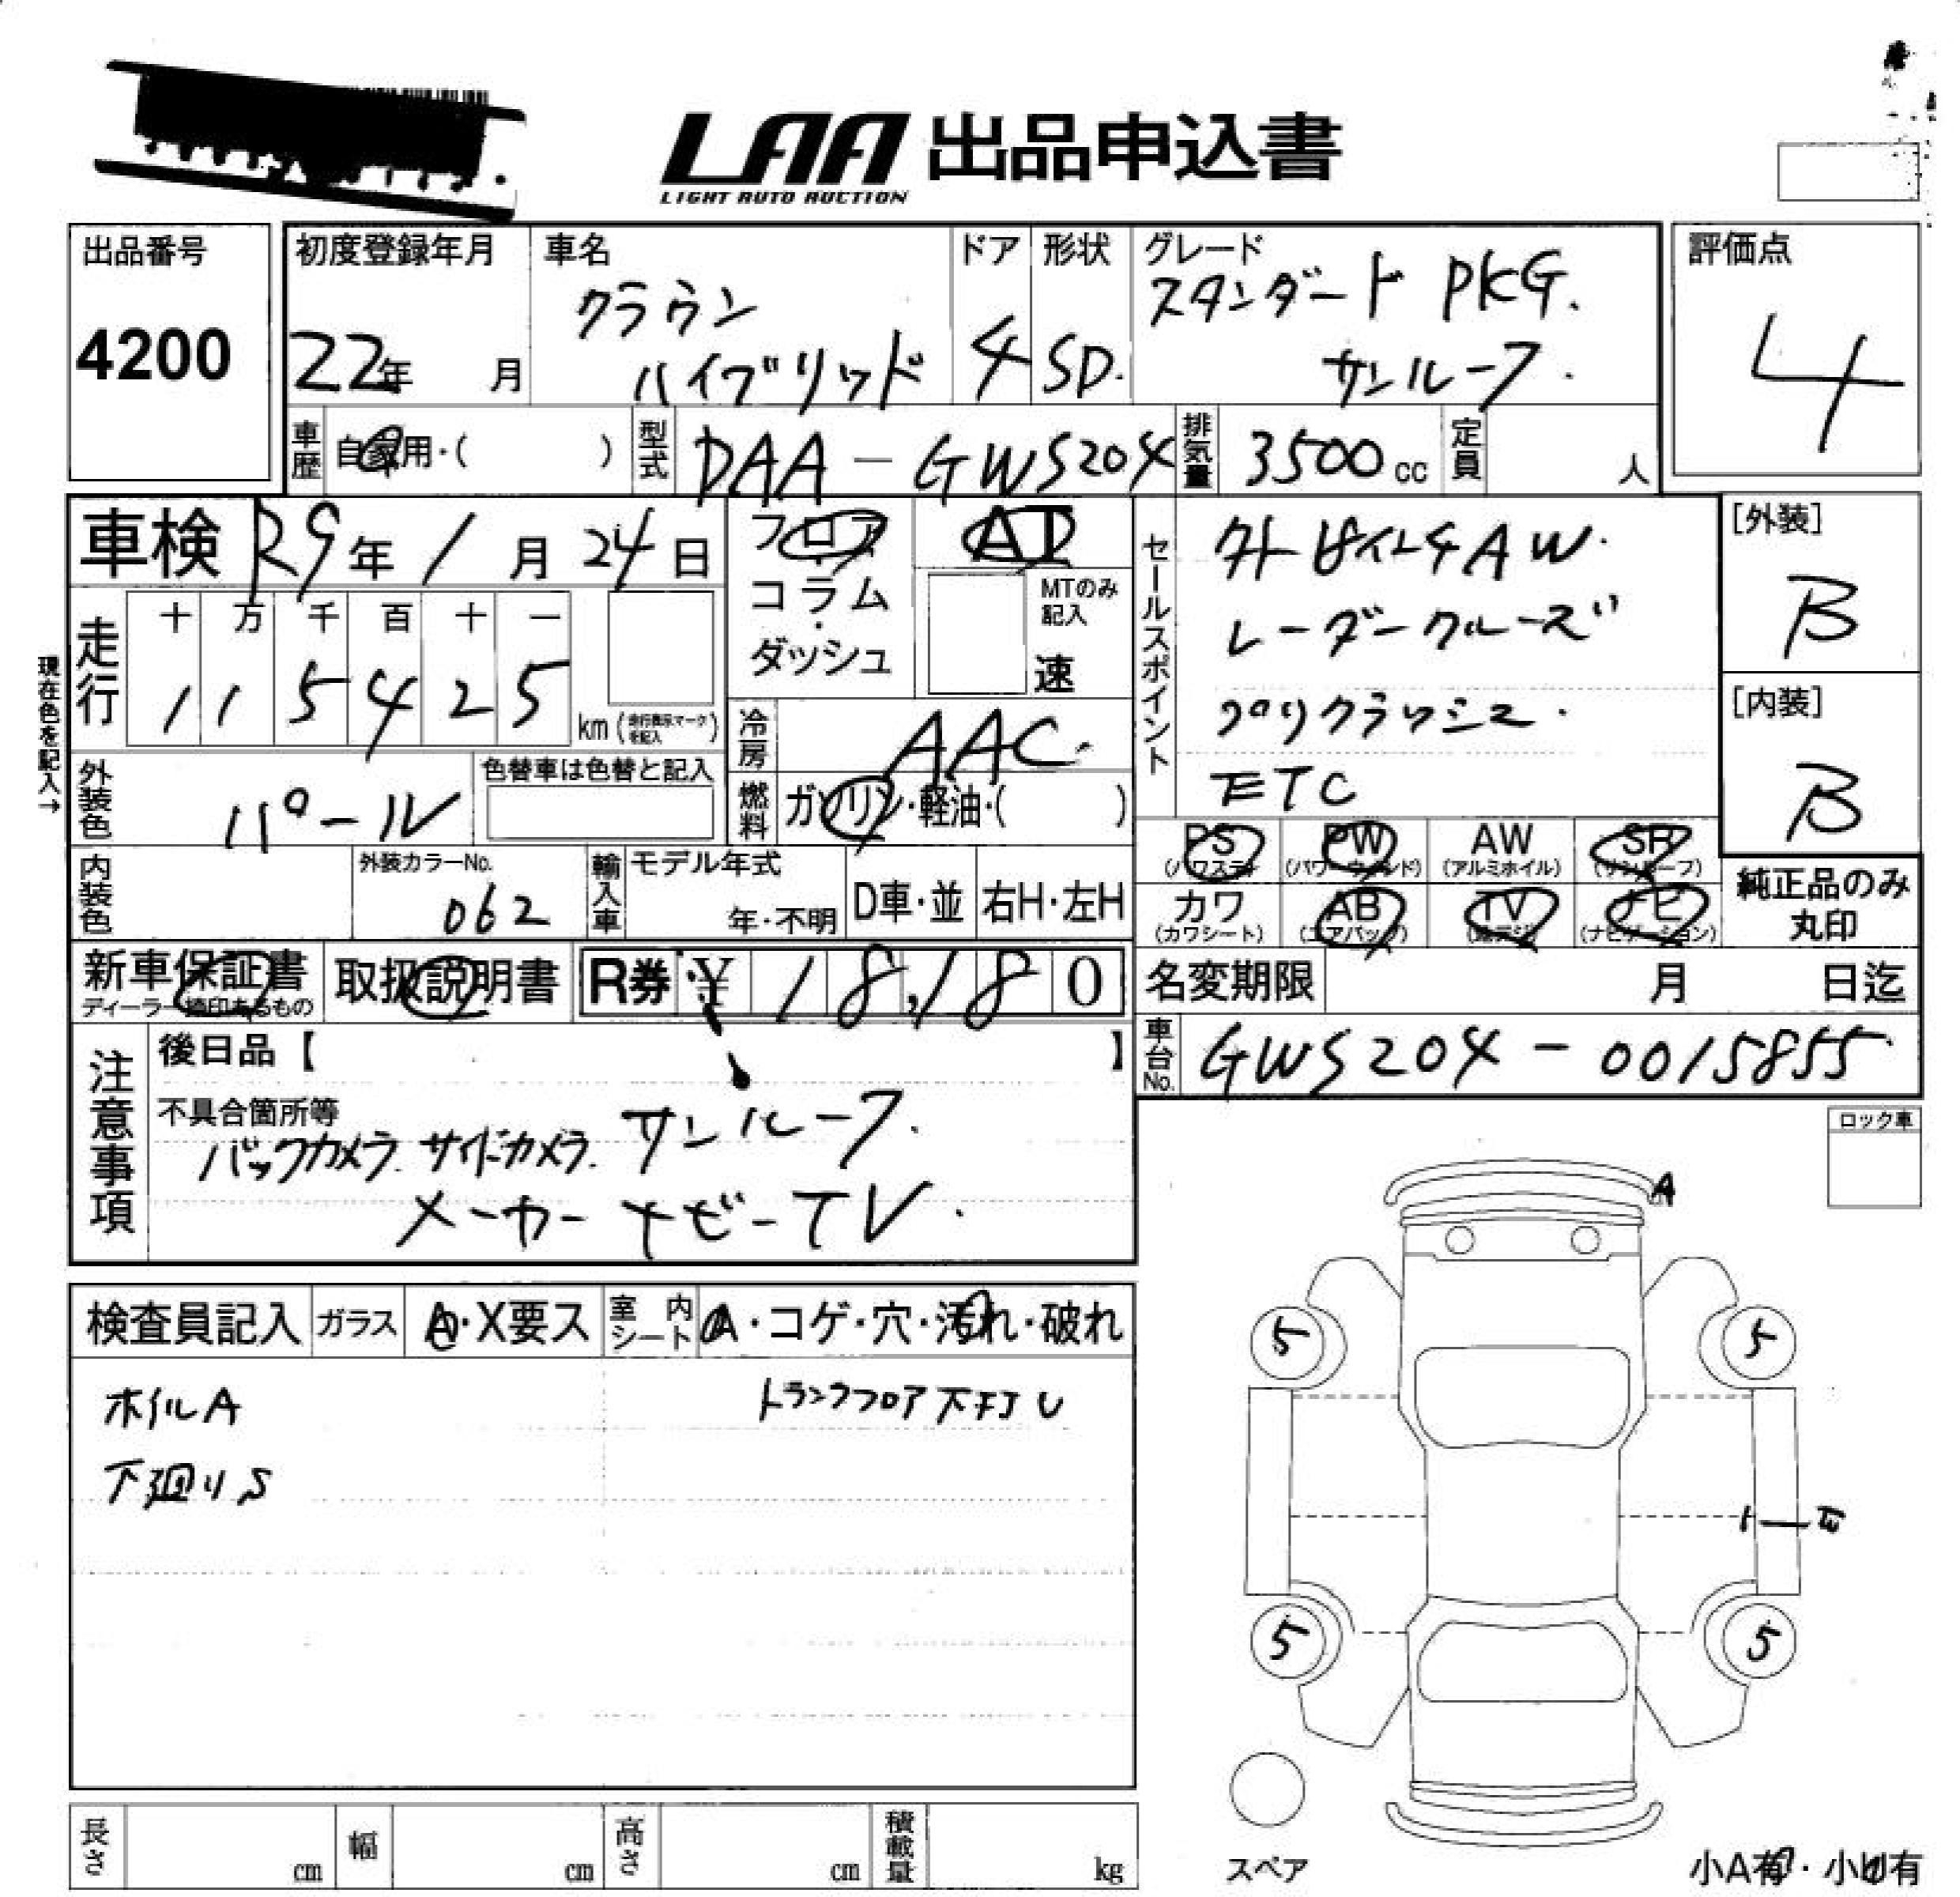 LAA 出品申込書
LIGHT AUTO AUCTION
出品番号
4200
初度登録年月
22年 月
車名
クラウン
ハイブリッド
ドア
4
形状
SD.
グレード
スタンダード PKG.
サンルーフ.
評価点
4
車歴
自家用・( )
型式
DAA-GWS204
排気量
3500cc
定員
人
車検 R9年1月24日
フロア
コラム
・
ダッシュ
AT
MTのみ
記入
速
セールスポイント
レーダークルーズ
プリクラッシュ.
ETC
[外装]
B
[内装]
B
現在色を記入→
走行
十 万 千 百 十 一
1 1 5 4 2 5
km (走行表示マークを記入)
冷房
AAC.
燃料
ガソリン・軽油・( )
外装色
パール
色替車は色替と記入
内装色
外装カラーNo.
062
輸入車
モデル年式
年・不明
D車・並
右H・左H
PS
(パワステ)
PW
(パワーウィンド)
AW
(アルミホイル)
SR
(サンルーフ)
カワ
(カワシート)
AB
(エアバッグ)
TV
(地デジ)
ナビ
(ナビゲーション)
純正品のみ
丸印
新車保証書
ディーラー捺印あるもの
取扱説明書
R券 ¥ 18,180
名変期限 月 日迄
車台No.
GWS204-0015855
注意事項
後日品【 】
不具合箇所等
バックカメラ. サイドカメラ. サンルーフ.
メーカーナビーTV.
ロック車
A
検査員記入
ガラス
A・X要ス
室内シート
A・コゲ・穴・汚れ・破れ
ホイルA
トランクフロア下サビU
下廻りS
5
5
5
5
スペア
小A有・小U有
長さ cm
幅 cm
高さ cm
積載量 kg